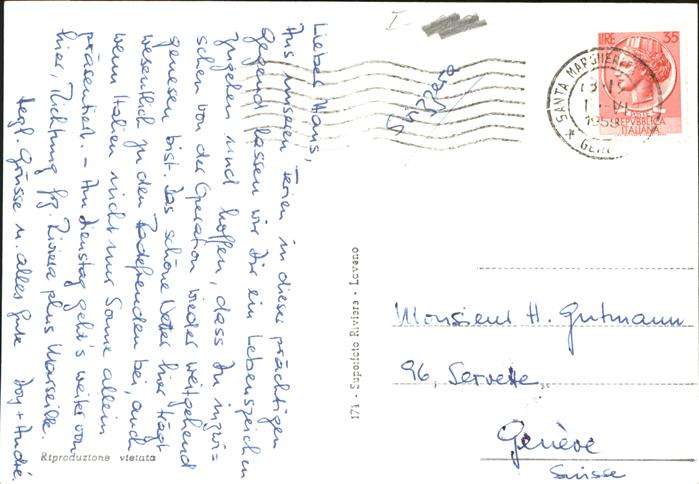 Lieber Hans,
Aus unseren Ferien in dieser prächtigen
Gegend lassen wir Dir ein Lebenszeichen
zugehen und hoffen, dass Du inzwi=
schen von der Operation wieder weitgehend
genesen bist. Das schöne Wetter hier trägt
wesentlich zu den Badefreuden bei, auch
wenn Italien nicht nur Sonne allein
präsentiert. – Am Dienstag geht's weiter von
hier, Richtung frz. Riviera plus Marseille.
Hzgl. Grüsse u. alles Gute Joy + André
Riproduzione vietata
171 - Superfoto Riviera - Lavano
I -
Svizzera
LIRE 35
REPUBBLICA
ITALIANA
SANTA MARGHERI
195
* GEN
Monsieur H. Gutmann
96, Servette
Genève
Suisse